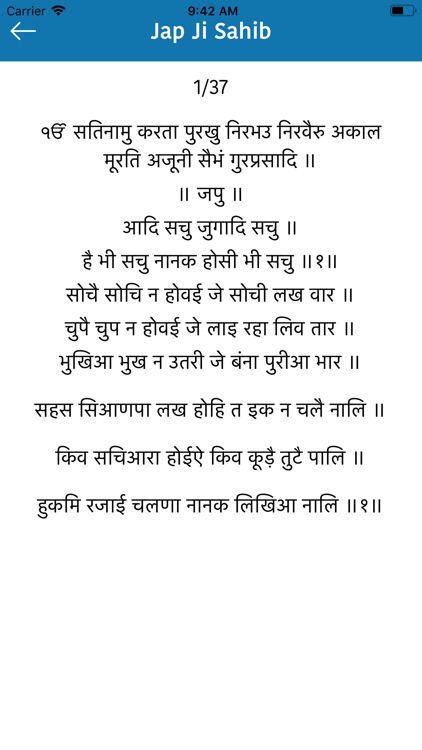 Carrier 9:42 AM
Jap Ji Sahib
1/37
ੴ सतिनामु करता पुरखु निरभउ निरवैरु अकाल
मूरति अजूनी सैभं गुरप्रसादि ॥
॥ जपु ॥
आदि सचु जुगादि सचु ॥
है भी सचु नानक होसी भी सचु ॥१॥
सोचै सोचि न होवई जे सोची लख वार ॥
चुपै चुप न होवई जे लाइ रहा लिव तार ॥
भुखिआ भुख न उतरी जे बंना पुरीआ भार ॥
सहस सिआणपा लख होहि त इक न चलै नालि ॥
किव सचिआरा होईऐ किव कूड़ै तुटै पालि ॥
हुकमि रजाई चलणा नानक लिखिआ नालि ॥१॥